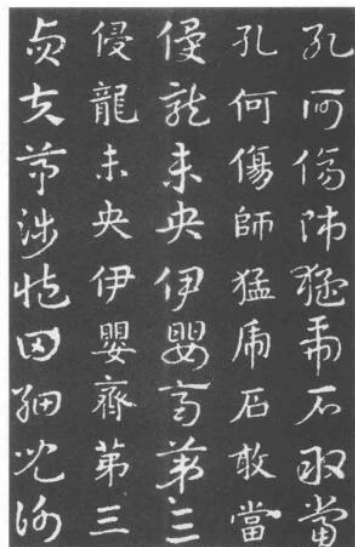 孔何傷師猛虎石敢當
孔何傷師猛虎石敢當
侵龍未央伊嬰齊第三
侵龍未央伊嬰齊第三
貞夫茅涉臧田細兒謝